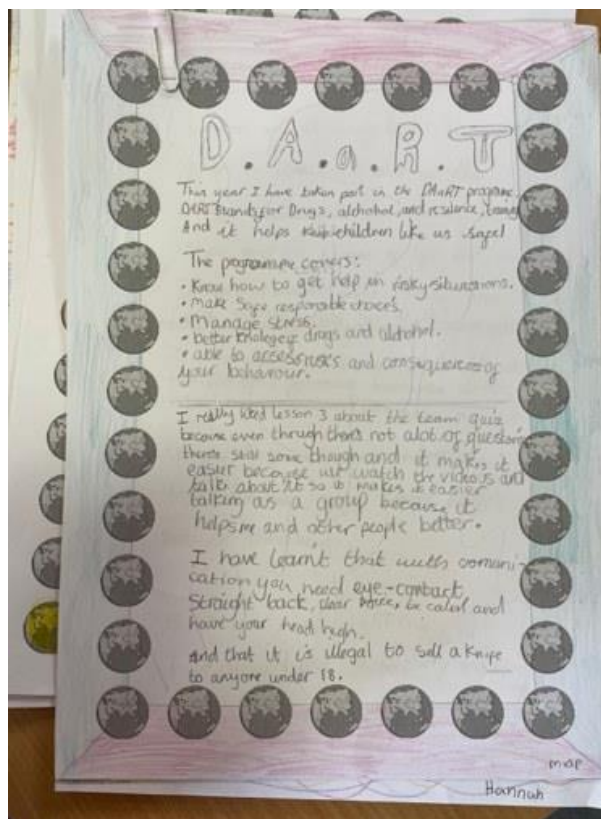 D.A.a.R.T
This year I have taken part in the DAaRT programe.
DAaRT stands for Drugs, alchohol, and resilience, training
And it helps keep children like us safe!
The programme covers:
• Know how to get help in risky situations.
• Make safe responsable choices.
• Manage stress.
• better knolege of drugs and alchohol.
• able to access risks and consequences of
your behaviour.
I really liked lesson 3 about the team quiz
because even through there's not alot of questions
there's still some though and it makes it
easier because we watch the videos and
talk about it so it makes it easier
talking as a group because it
helps me and other people better.
I have learn't that with comuni-
cation you need eye-contact
Straight back, clear voice, be calm and
have your head high.
And that it is illegal to sell a knife
to anyone under 18.
map
Hannah